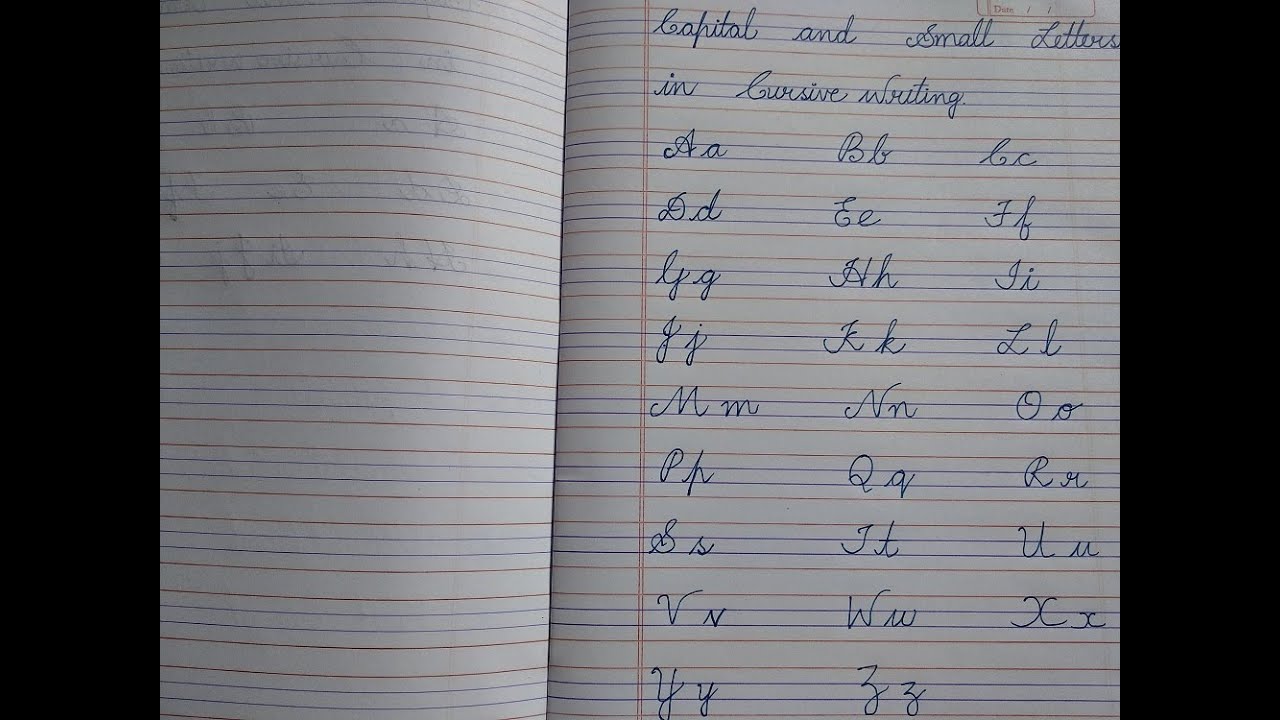 Date / /
Capital and Small Letters
in Cursive Writing.
Aa Bb Cc
Dd Ee Ff
Gg Hh Ii
Jj Kk Ll
Mm Nn Oo
Pp Qq Rr
Ss Tt Uu
Vv Ww Xx
Yy Zz